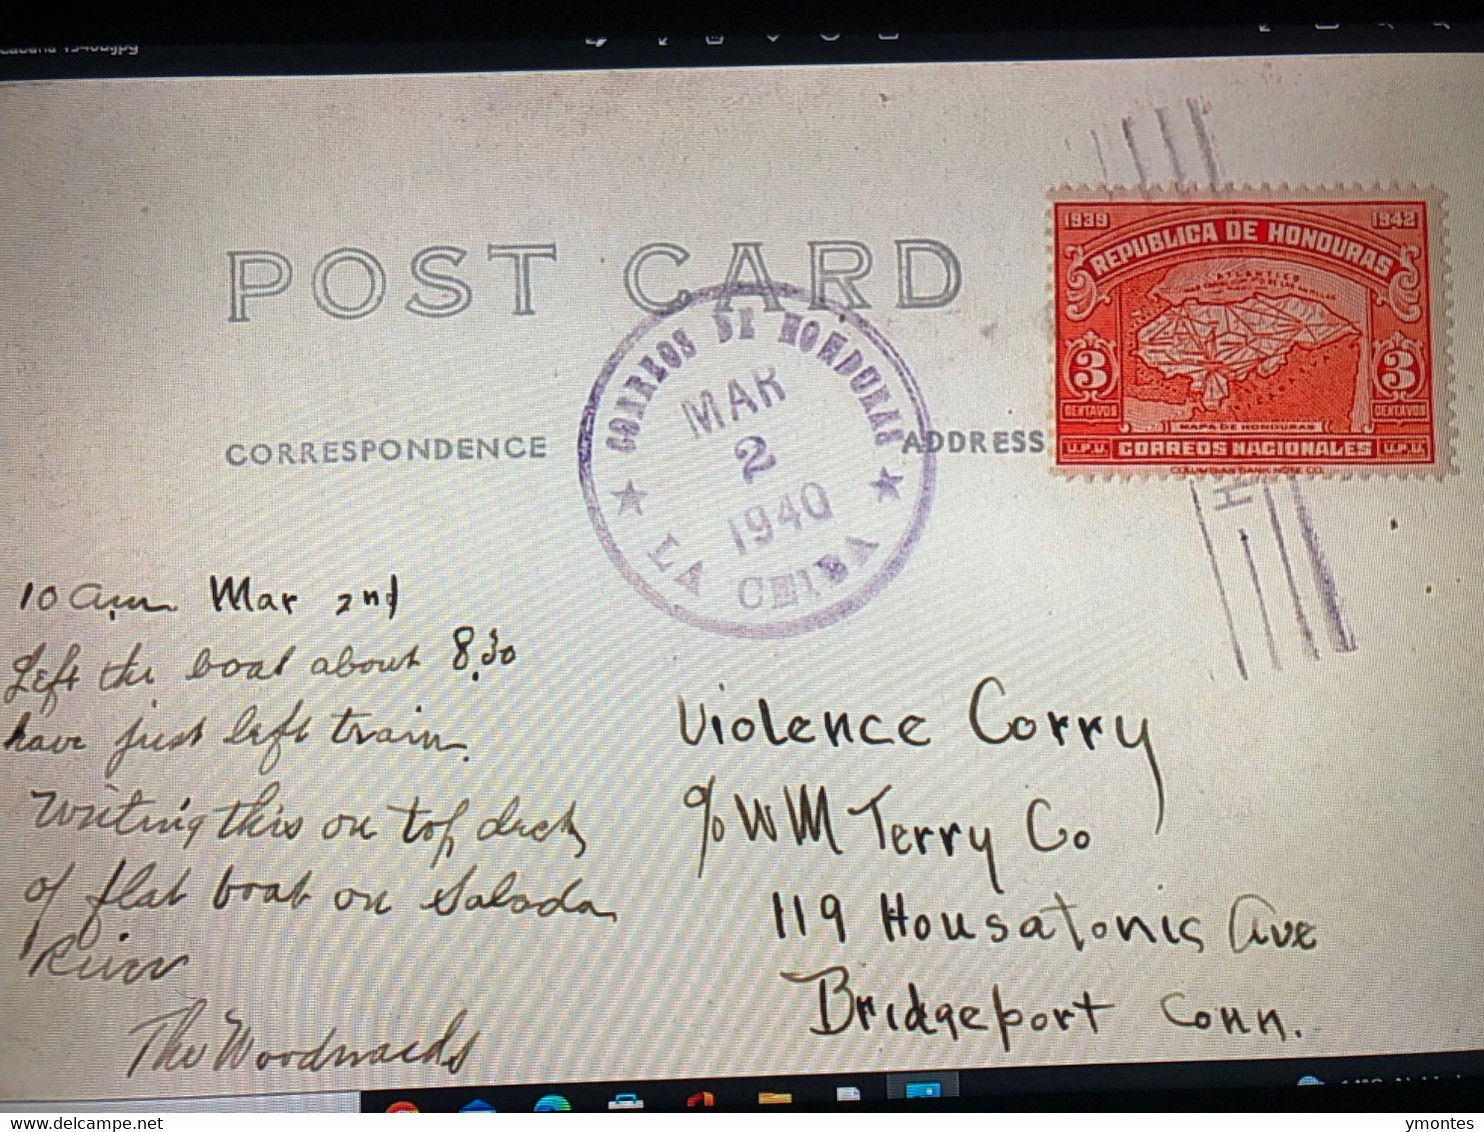 1940b.jpg
POST CARD
CORRESPONDENCE
ADDRESS
CORREOS DE HONDURAS
MAR
2
1940
LA CEIBA
1939 1942
REPUBLICA DE HONDURAS
3 3
CENTAVOS CENTAVOS
MAPA DE HONDURAS
U.P.U. CORREOS NACIONALES U.P.U.
COLUMBIAN BANK NOTE CO.
10 a.m. Mar 2nd
Left the boat about 8.30
have just left train.
Writing this on top deck
of flat boat on Salada
River
The Woodwards
Violence Corry
c/o WM Terry Co
119 Housatonic Ave
Bridgeport Conn.
delcampe.net
ymontes